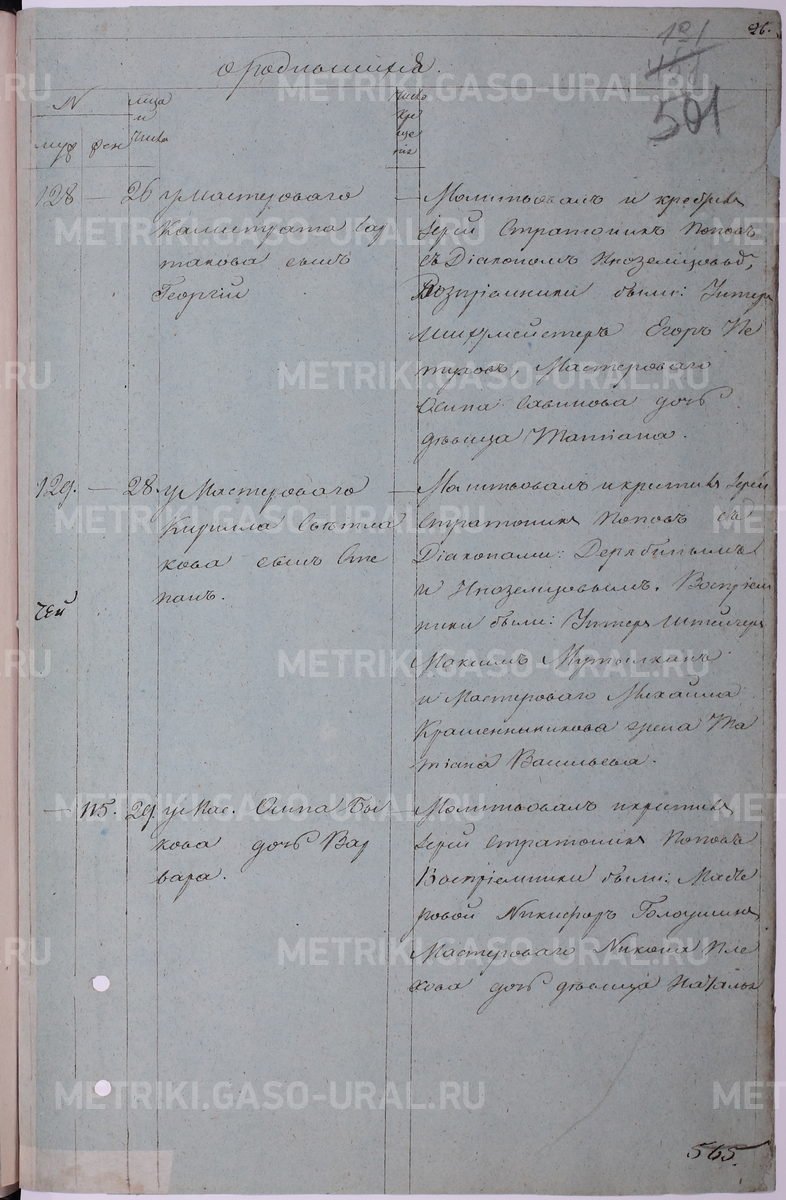 26.
501
о родившихся.
№
муж
жен
Лица
и
числа
Число
Кре
ще
нія
128 — 26 у мастероваго
Калистрата Бар
такова сынъ
Георгій
— Молитвовалъ и крестилъ
Іерей Стратоникъ Поповъ
съ Діакономъ Иноземцовымъ,
Воспріемники были: Унтеръ
шихтмейстеръ Егоръ Пе
туховъ, Мастероваго
Осипа Савинова дочь
дѣвица Татіана.
129. — 28. у Мастероваго
Кирилла Свѣтла
кова сынъ Сте
панъ.
— Молитвовалъ и крестилъ Іерей
Стратоникъ Поповъ съ
Діаконами: Дерябинымъ
и Иноземцовымъ. Воспріем
ники были: Унтеръ Штейгеръ
Максимъ
и Мастероваго Михайла
Крашенинникова жена Та
тіана Васильева.
чей
— 115. 29 у Мас. Осипа Бы
кова дочь Вар
вара.
— Молитвовалъ и крестилъ
Іерей Стратоникъ Поповъ
Воспріемники были: Масте
ровой Никифоръ Голоушинъ
Мастероваго Никона Пле
хова дочь дѣвица Наталья
565.
METRIKI.GASO-URAL.RU